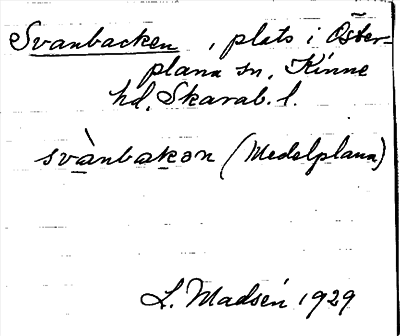 Svanbacken, plats i Öster-
plana sn, Kinne
hd, Skarab. l.
svànbakon (Medelplana)
L. Madsén 1929